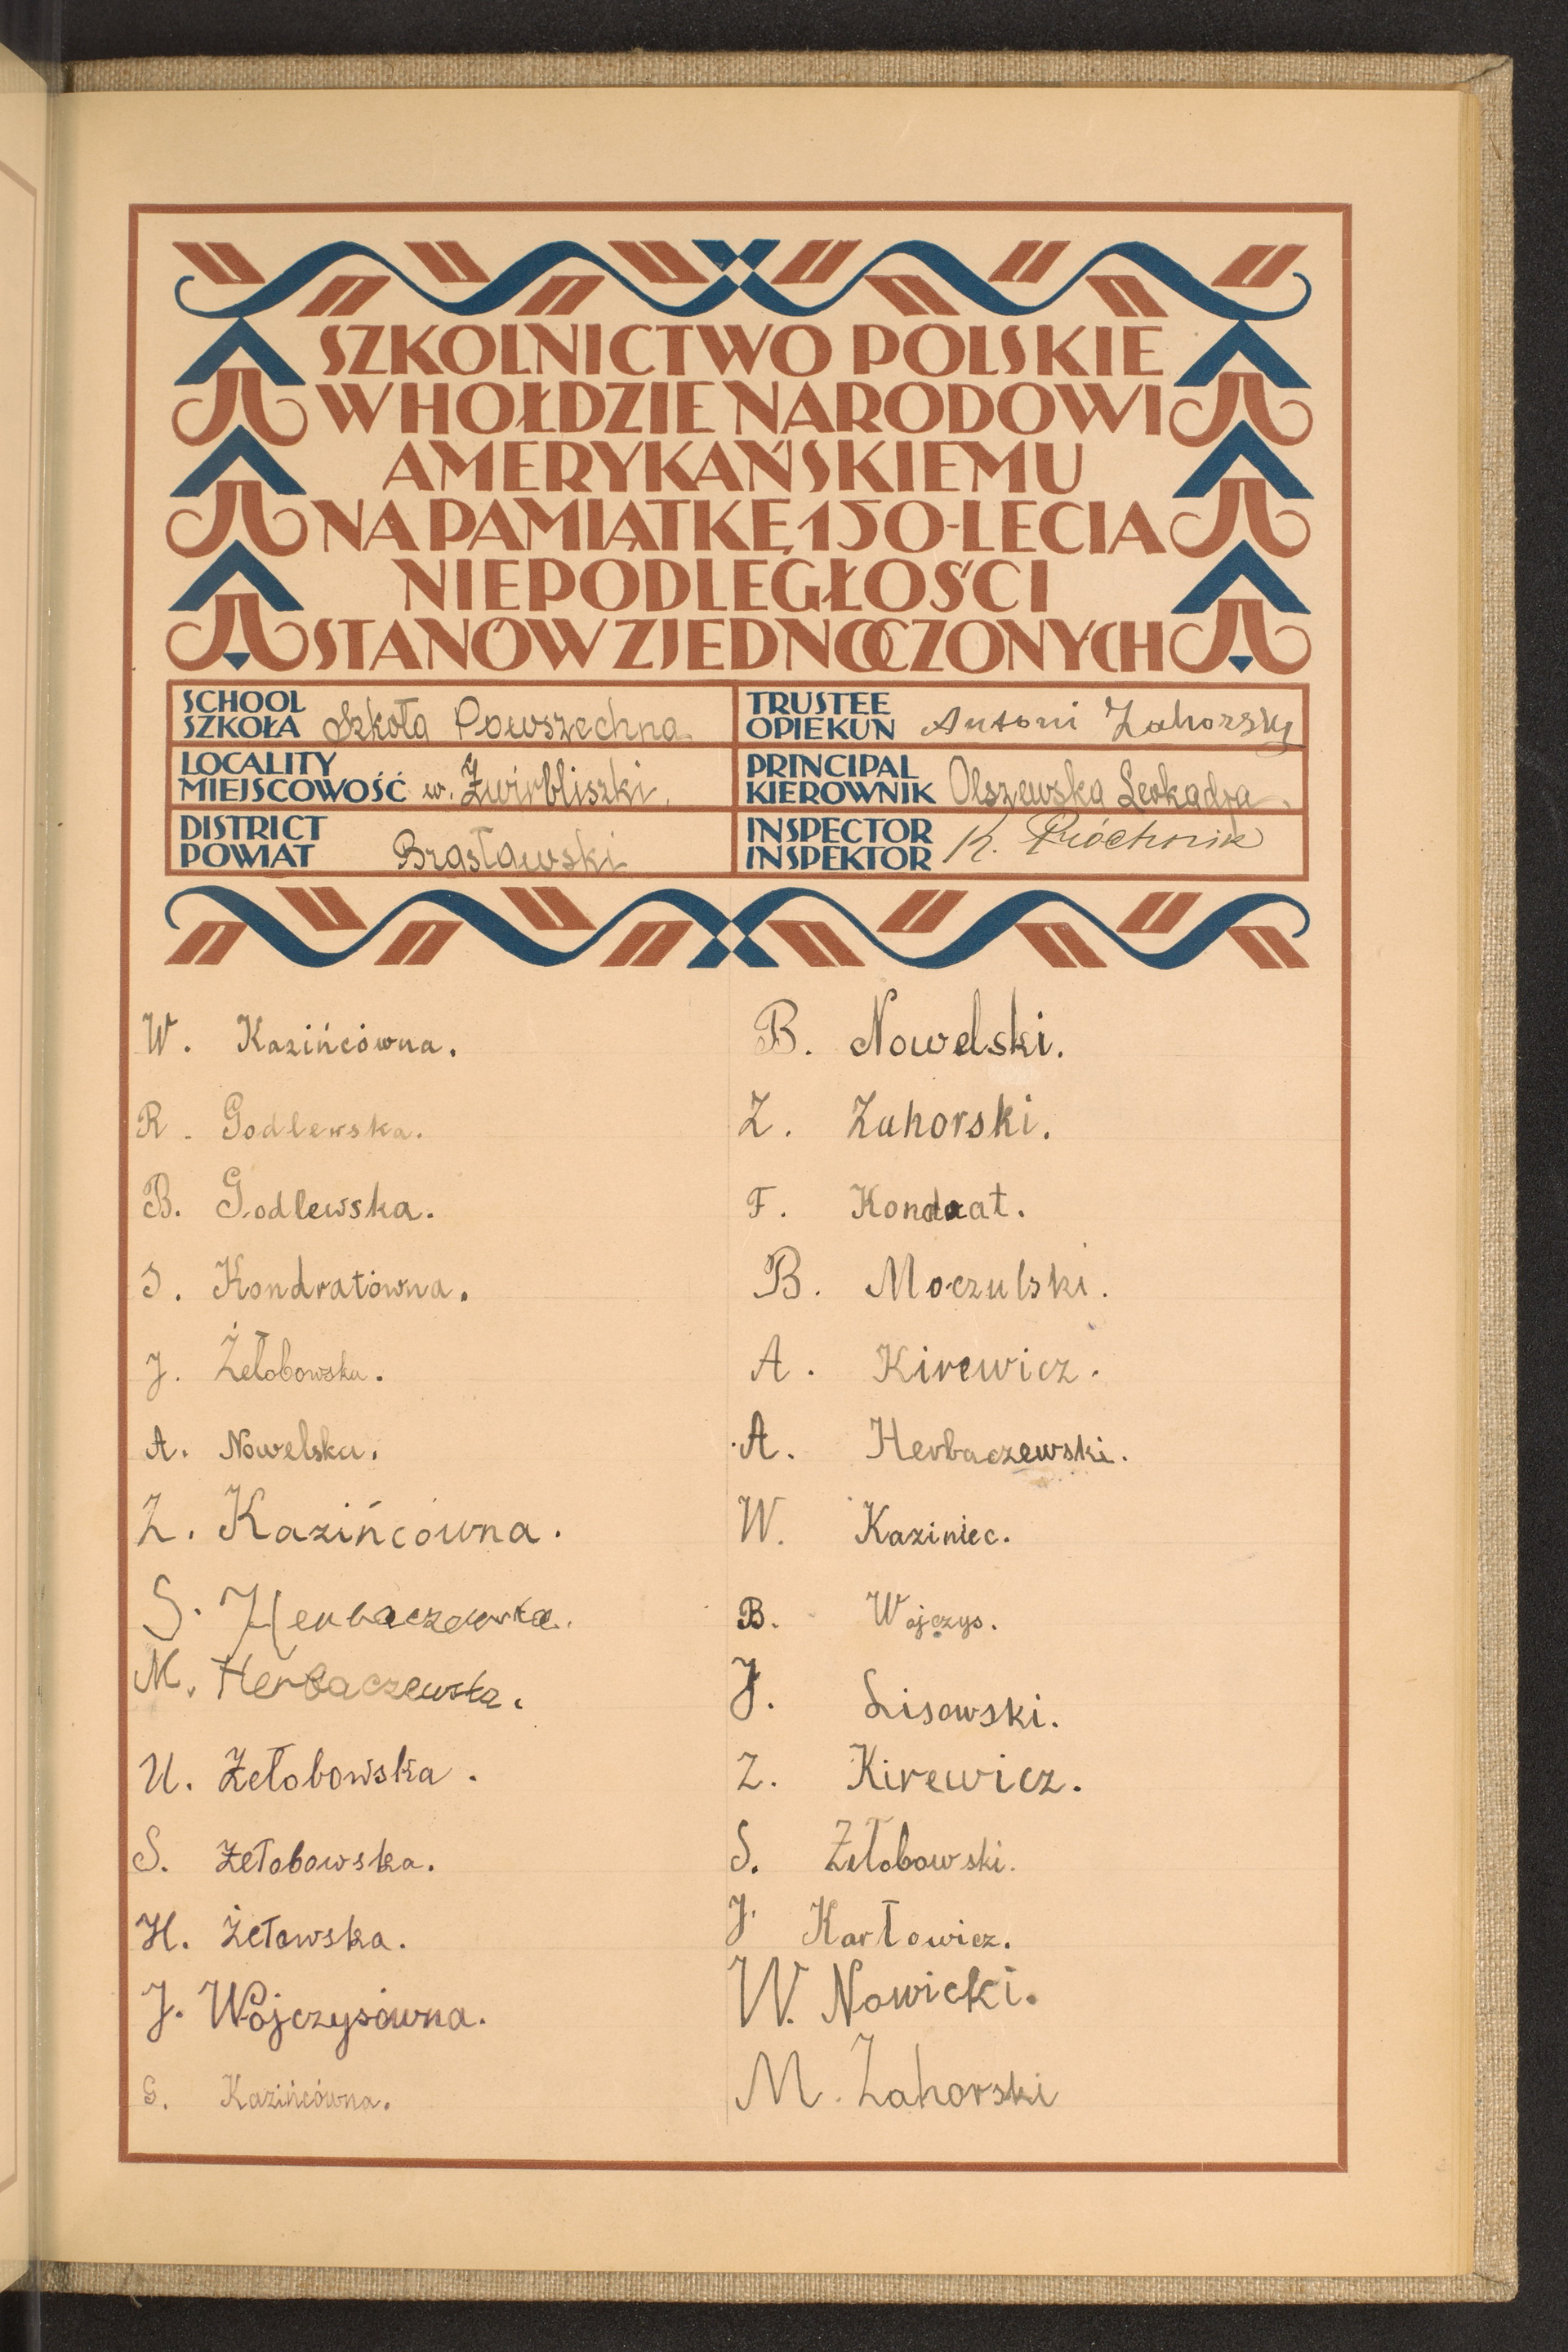 SZKOLNICTWO POLSKIE
W HOŁDZIE NARODOWI
AMERYKAŃSKIEMU
NA PAMIĄTKĘ 150-LECIA
NIEPODLEGŁOŚCI
STANÓW ZJEDNOCZONYCH
SCHOOL
SZKOŁA Szkoła Powszechna
TRUSTEE
OPIEKUN Antoni Zahorski
LOCALITY
MIEJSCOWOŚĆ w. Żwirbliszki.
PRINCIPAL
KIEROWNIK Olszewska Leokadja
DISTRICT
POWIAT Brasławski
INSPECTOR
INSPEKTOR K. Próchnik
W. Kazińcówna.
R. Godlewska.
B. Godlewska.
J. Kondratówna.
J. Żełobowska.
A. Nowelska.
Z. Kazińcówna.
S. Herbaczewska.
M. Herbaczewska.
U. Żełobowska.
S. Żełobowska.
H. Żełowska.
J. Wójczysówna.
G. Kazińcówna.
B. Nowelski.
Z. Zahorski.
F. Kondrat.
B. Moczulski.
A. Kirewicz.
A. Herbaczewski.
W. Kaziniec.
B. Wojczys.
J. Lisowski.
Z. Kirewicz.
S. Żełobowski.
J. Karłowicz.
W. Nowicki.
M. Zahorski